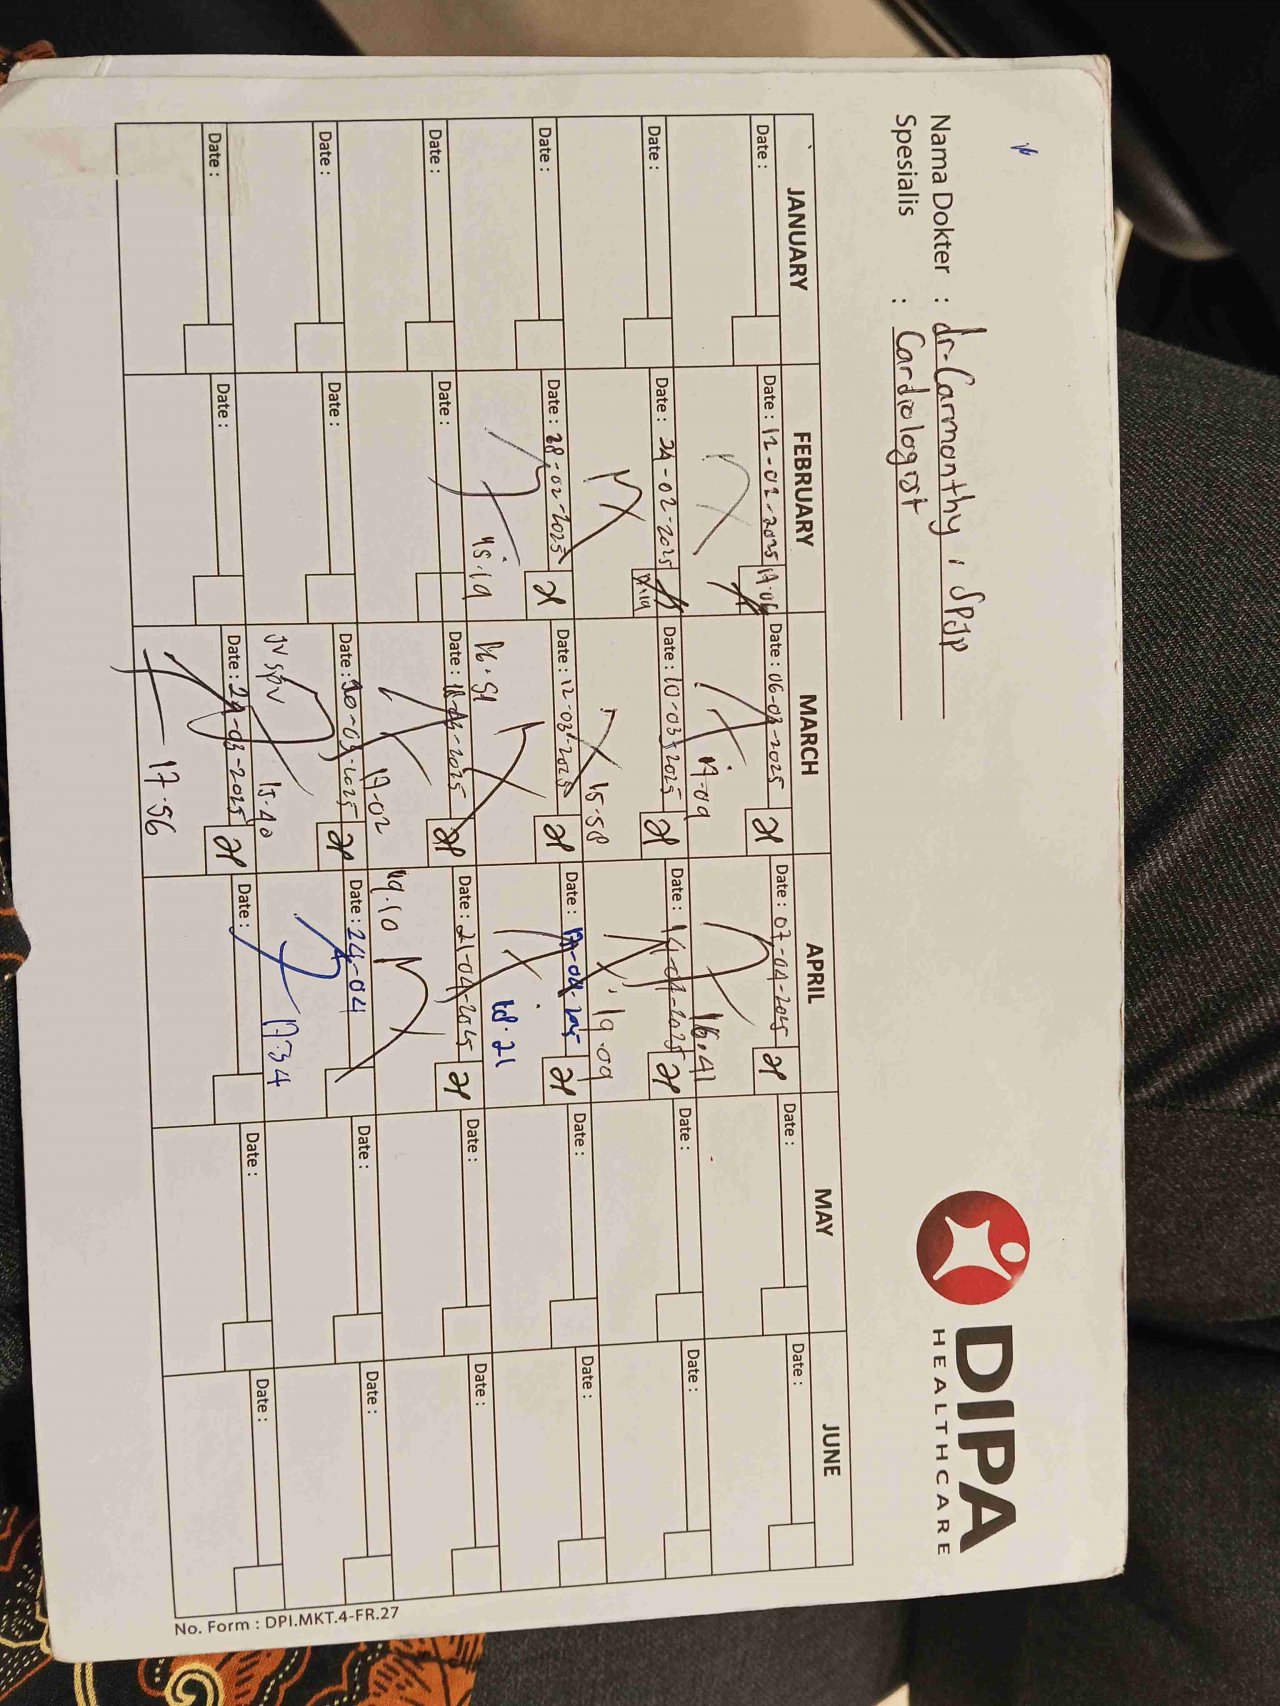 DIPA
HEALTHCARE
Nama Dokter : dr. Carmonthy, SPJP
Spesialis : Cardiologist
JANUARY FEBRUARY MARCH APRIL MAY JUNE
Date : Date : 12-02-2025 17.06 Date : 06-03-2025 Date : 07-04-2025 Date : Date :
17.09 16.41
Date : Date : 24-02-2025 Date : 10-03-2025 Date : 14-04-2025 Date : Date :
15.58 19.09
Date : Date : 28-02-2025 Date : 12-03-2025 Date : 17-04-2025 Date : Date :
16.51 18.21
Date : Date : Date : 18-03-2025 Date : 21-04-2025 Date : Date :
17.02 19.10
Date : Date : Date : 20-03-2025 Date : 24-04 Date : Date :
JV SPV 15.40 17.34
Date : Date : Date : 24-03-2025 Date : Date : Date :
17.56
No. Form : DPI.MKT.4-FR.27